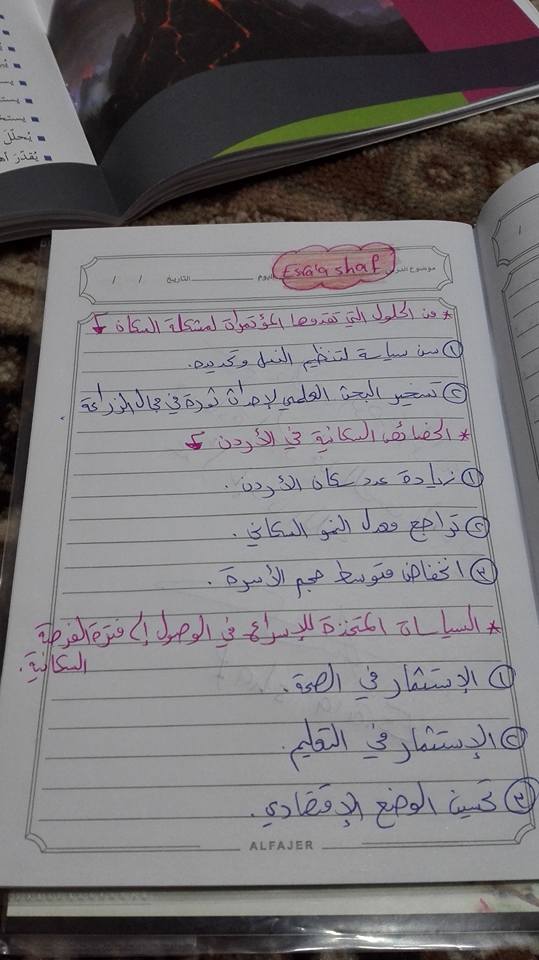 يُحلّل
يُقدّر
موضوع الدر
Esra'a shaf
اليوم
التاريخ / /
* من الحلول التي تقدمها المؤتمرات لمشكلة السكان
① سن سياسة لتنظيم النسل وتحديده.
② تسخير البحث العلمي لإحداث ثورة في مجال الزراعة.
* الخصائص السكانية في الأردن
① زيادة عدد سكان الأردن.
② تراجع معدل النمو السكاني.
③ انخفاض متوسط حجم الأسرة.
* السياسات المتخذة للإسراع في الوصول إلى فترة الفرصة
السكانية.
① الإستثمار في الصحة.
② الإستثمار في التعليم.
③ تحسين الوضع الإقتصادي.
ALFAJER